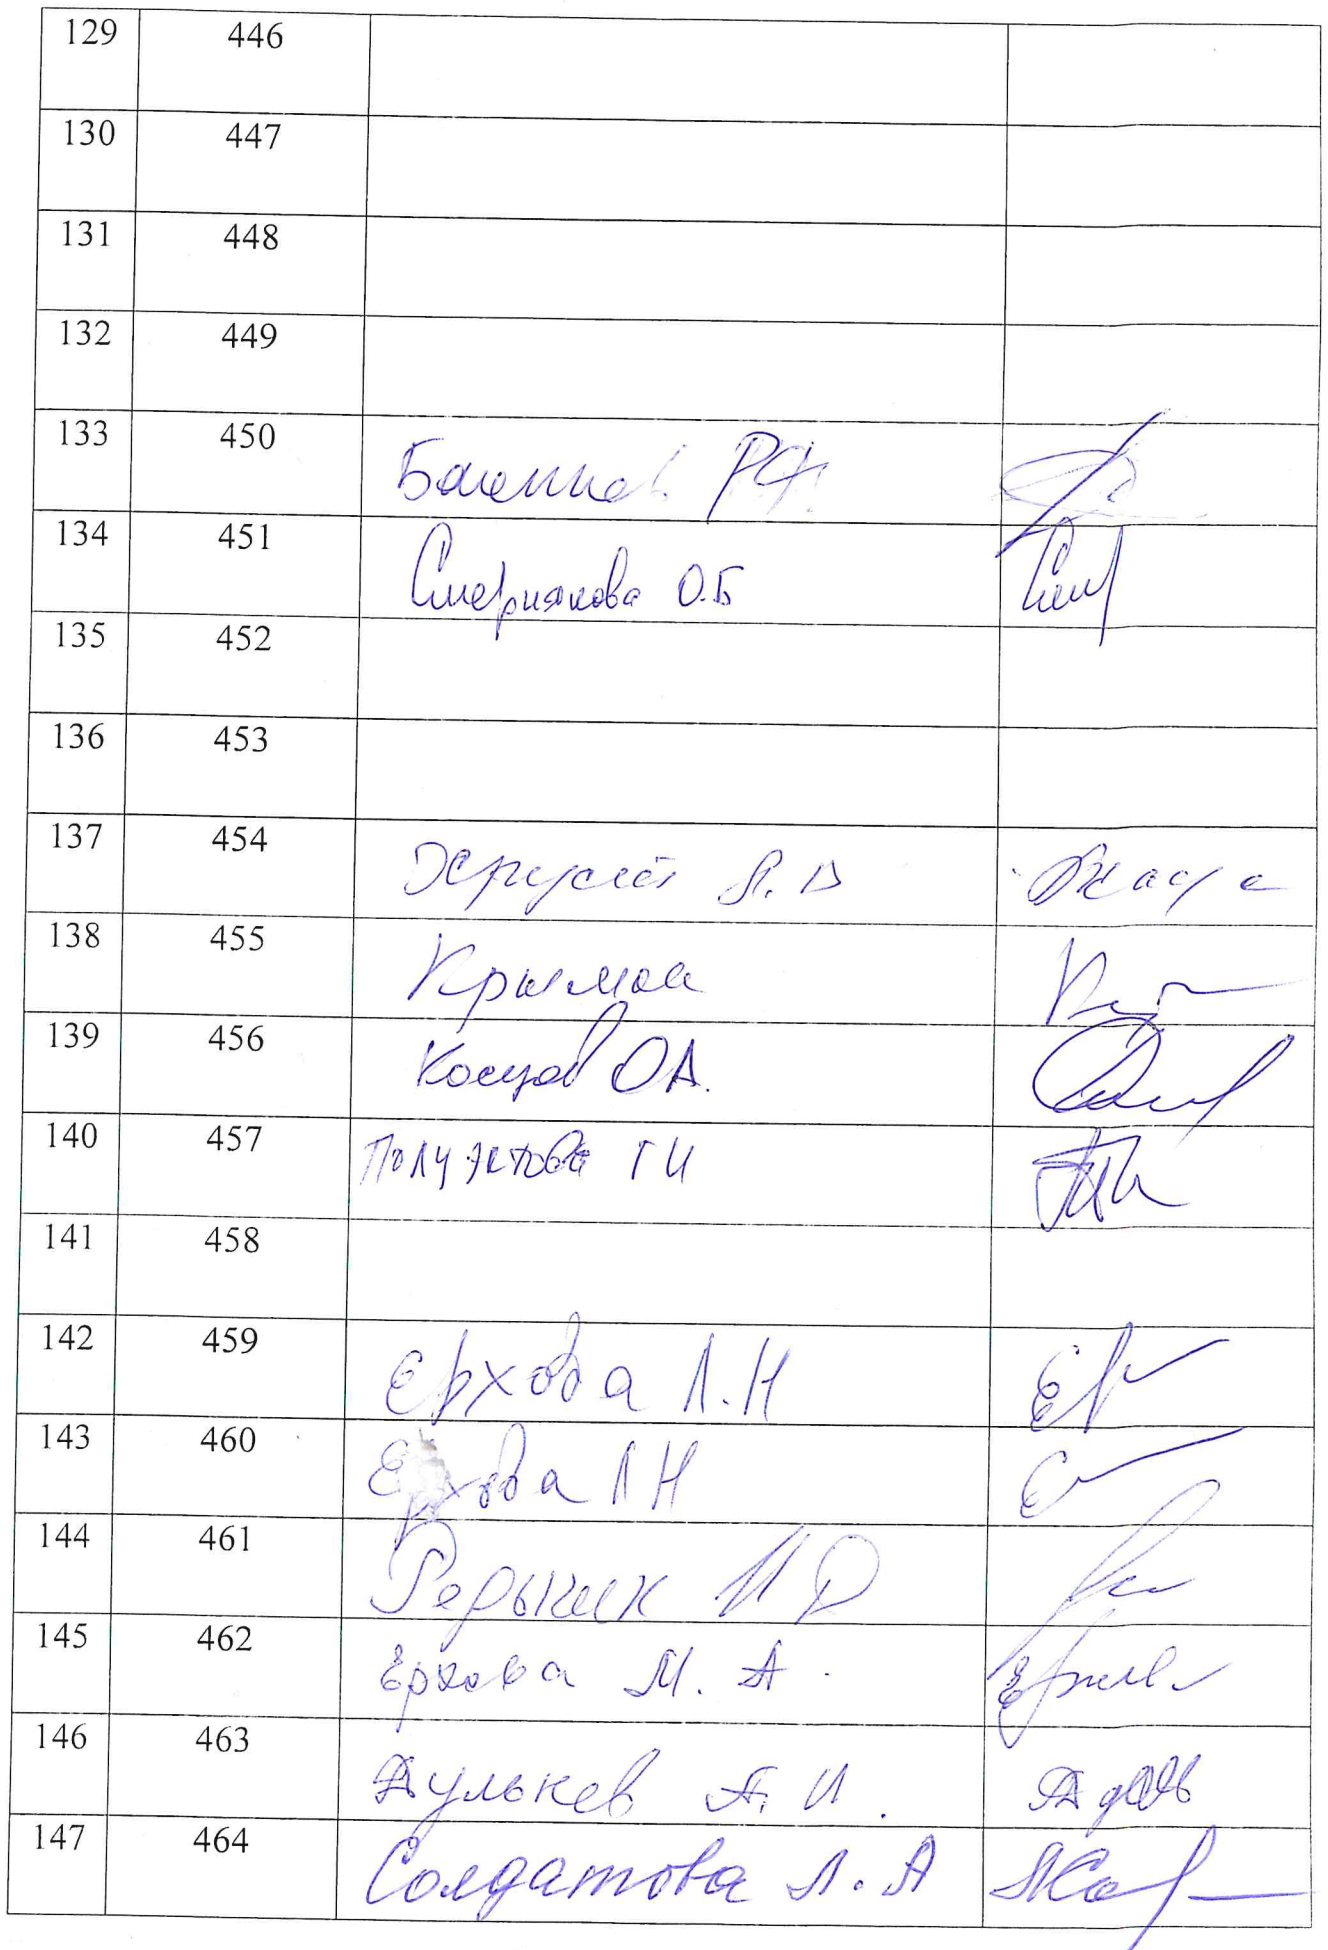 129 446
130 447
131 448
132 449
133 450 РФ.
134 451 Смерчякова О.Б
135 452
136 453
137 454 Л. В
138 455
139 456 Косцов О А.
140 457 Полуэктова ГИ
141 458
142 459 Ерхова Л.Н
143 460 Ерхова Л Н
144 461
145 462 Ерхова М. А.
146 463 Дульнев А. И.
147 464 Солдатова Л. А